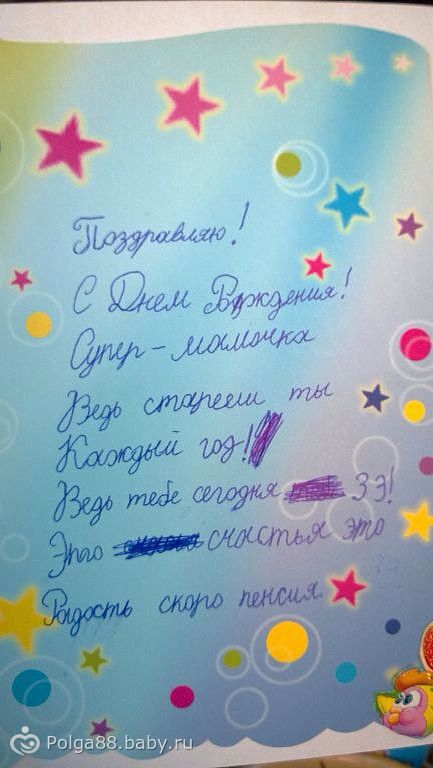 Поздравляю!
С Днем Рождения!
Супер-мамочка
Ведь стареешь ты
Каждый год!
Ведь тебе сегодня 33!
Это счастья это
Радость скоро пенсия.
Polga88.baby.ru